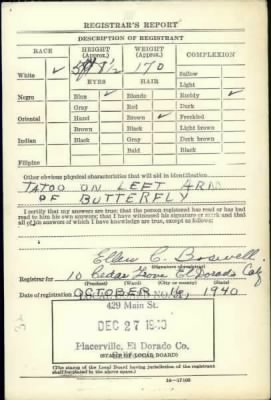 REGISTRAR'S REPORT
DESCRIPTION OF REGISTRANT
RACE HEIGHT (Approx.) WEIGHT (Approx.) COMPLEXION
White ✓ 1/2 170 Sallow
EYES HAIR Light
Negro Blue ✓ Blonde Ruddy ✓
Gray Red Dark
Oriental Hazel Brown ✓ Freckled
Brown Black Light brown
Indian Black Gray Dark brown
Bald Black
Filipino
Other obvious physical characteristics that will aid in identification
TATOO ON LEFT ARM
OF BUTTERFLY
I certify that my answers are true; that the person registered has read or has had
read to him his own answers; that I have witnessed his signature or mark and that
all of his answers of which I have knowledge are true, except as follows:
Ellen C.
(Signature of registrar)
Registrar for 10 Cedar Grove El Dorado Cal
(Precinct) (Ward) (City or county) (State)
Date of registration OCTOBER 16 1940
429 Main St.
DEC 27 1940
Placerville, El Dorado Co.
(STAMP OF LOCAL BOARD)
(The stamp of the Local Board having jurisdiction of the registrant
shall be placed in the above space.)